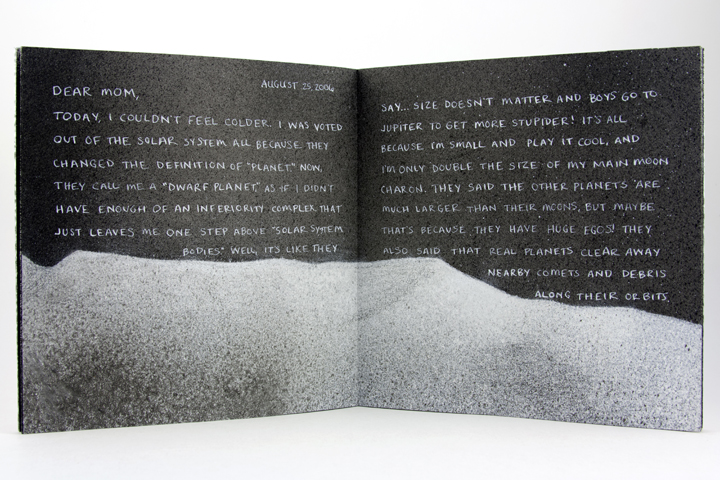 AUGUST 25, 2006
DEAR MOM,
TODAY, I COULDN'T FEEL COLDER. I WAS VOTED
OUT OF THE SOLAR SYSTEM ALL BECAUSE THEY
CHANGED THE DEFINITION OF "PLANET." NOW,
THEY CALL ME A "DWARF PLANET," AS IF I DIDN'T
HAVE ENOUGH OF AN INFERIORITY COMPLEX. THAT
JUST LEAVES ME ONE STEP ABOVE "SOLAR SYSTEM
BODIES." WELL, IT'S LIKE THEY
SAY... SIZE DOESN'T MATTER AND BOYS GO TO
JUPITER TO GET MORE STUPIDER! IT'S ALL
BECAUSE I'M SMALL AND PLAY IT COOL, AND
I'M ONLY DOUBLE THE SIZE OF MY MAIN MOON
CHARON. THEY SAID THE OTHER PLANETS ARE
MUCH LARGER THAN THEIR MOONS, BUT MAYBE
THAT'S BECAUSE THEY HAVE HUGE EGOS! THEY
ALSO SAID THAT REAL PLANETS CLEAR AWAY
NEARBY COMETS AND DEBRIS
ALONG THEIR ORBITS.